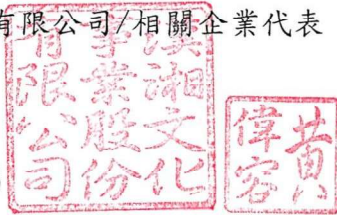 有限公司/相關企業代表
漢湘文化
事業股份
有限公司
黃
偉容